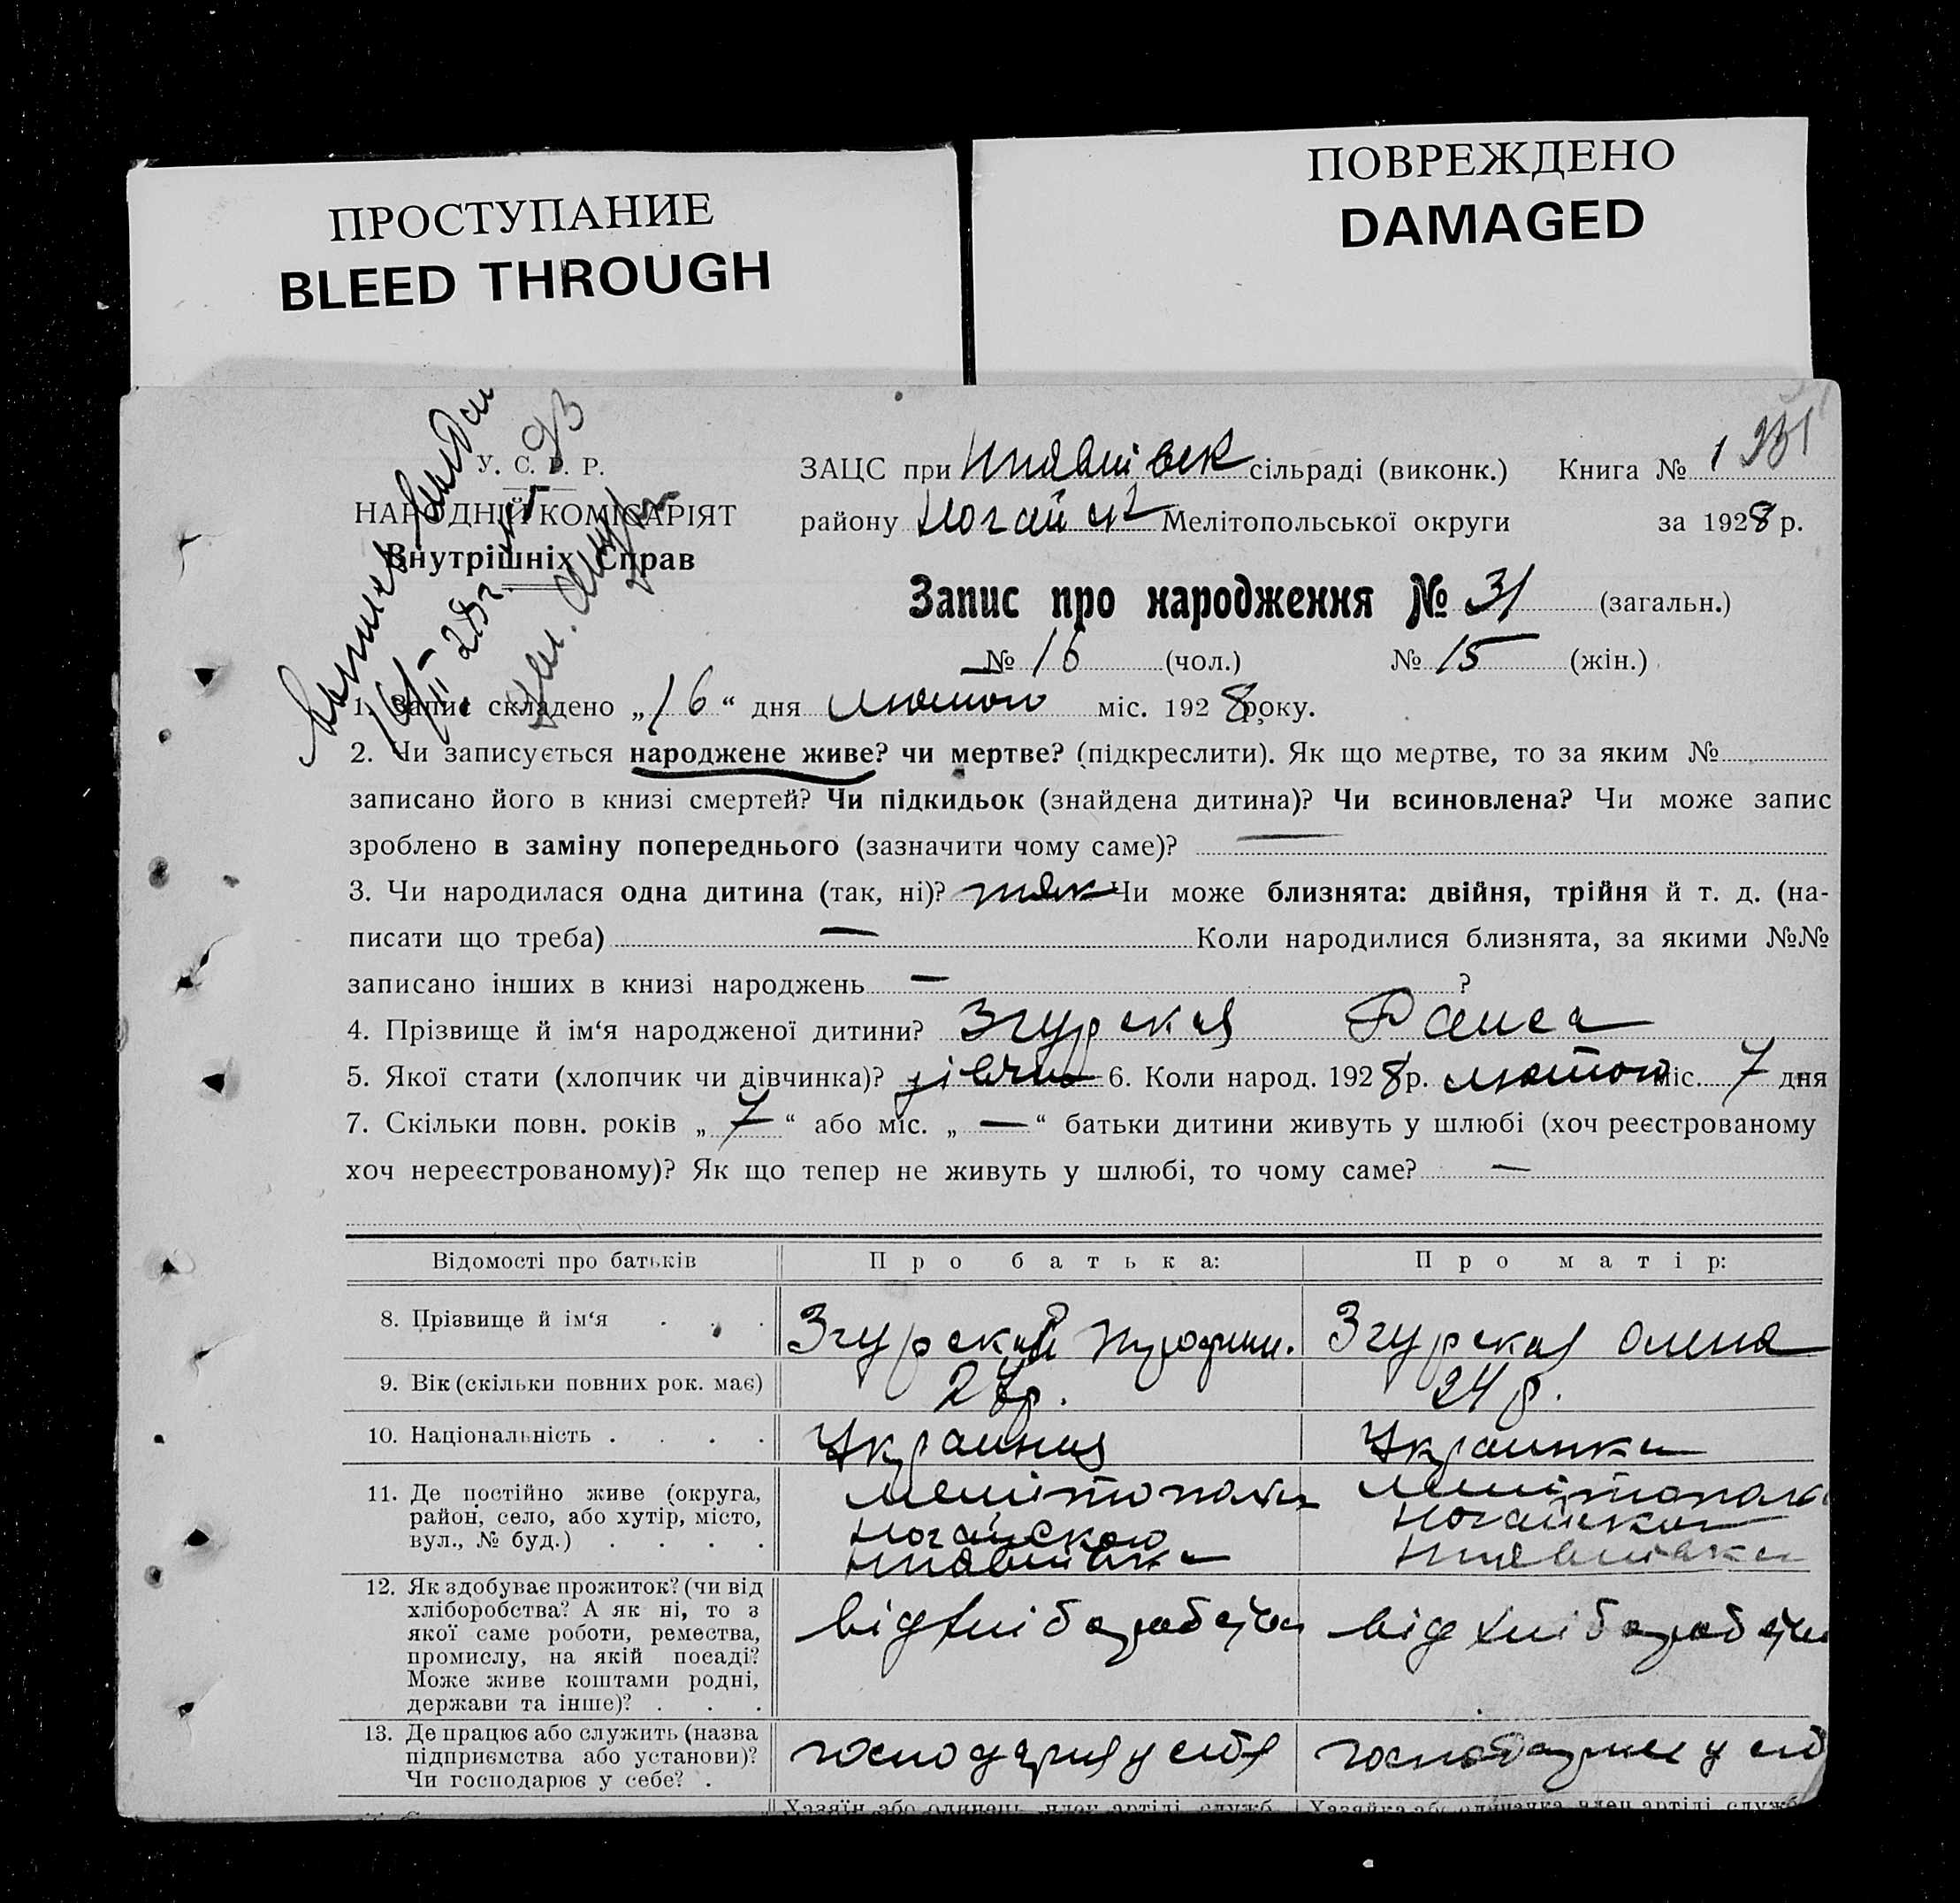 ПРОСТУПАНИЕ
BLEED THROUGH
ПОВРЕЖДЕНО
DAMAGED
У. С. Р. Р.
НАРОДНІЙ КОМІСАРІЯТ
Внутрішніх Справ
ЗАЦС при сільраді (виконк.) Книга № 1
району Ногайск Мелітопольської округи за 1928 р.
Запис про народження № 31 (загальн.)
№ 16 (чол.) № 15 (жін.)
1. Запис складено „16“ дня лютого міс. 1928 року.
2. Чи записується народжене живе? чи мертве? (підкреслити). Як що мертве, то за яким №
записано його в книзі смертей? Чи підкидьок (знайдена дитина)? Чи всиновлена? Чи може запис
зроблено в заміну попереднього (зазначити чому саме)? —
3. Чи народилася одна дитина (так, ні)? так Чи може близнята: двійня, трійня й т. д. (на-
писати що треба) — Коли народилися близнята, за якими №№
записано інших в книзі народжень — ?
4. Прізвище й ім‘я народженої дитини? Згурская Раиса
5. Якої стати (хлопчик чи дівчинка)? дівчи 6. Коли народ. 1928 р. лютого міс. 7 дня
7. Скільки повн. років „7“ або міс. „—“ батьки дитини живуть у шлюбі (хоч реєстрованому
хоч нереєстрованому)? Як що тепер не живуть у шлюбі, то чому саме? —
Відомості про батьків Про батька: Про матір:
8. Прізвище й ім‘я Згурский Згурская Олена
9. Вік (скільки повних рок. має) 24 р.
10. Національність Украинка
11. Де постійно живе (округа,
район, село, або хутір, місто,
вул., № буд.)
Ногайского
12. Як здобуває прожиток? (чи від
хліборобства? А як ні, то з
якої саме роботи, ремества,
промислу, на якій посаді?
Може живе коштами родні,
держави та інше)?
від хліборобства від хліборобства
13. Де працює або служить (назва
підприємства або установи)?
Чи господарює у себе?
господарює у себе господарює у себ
Хазяїн або одинець, член артілі, служб. Хазяйка або одиначка, член артілі, служб